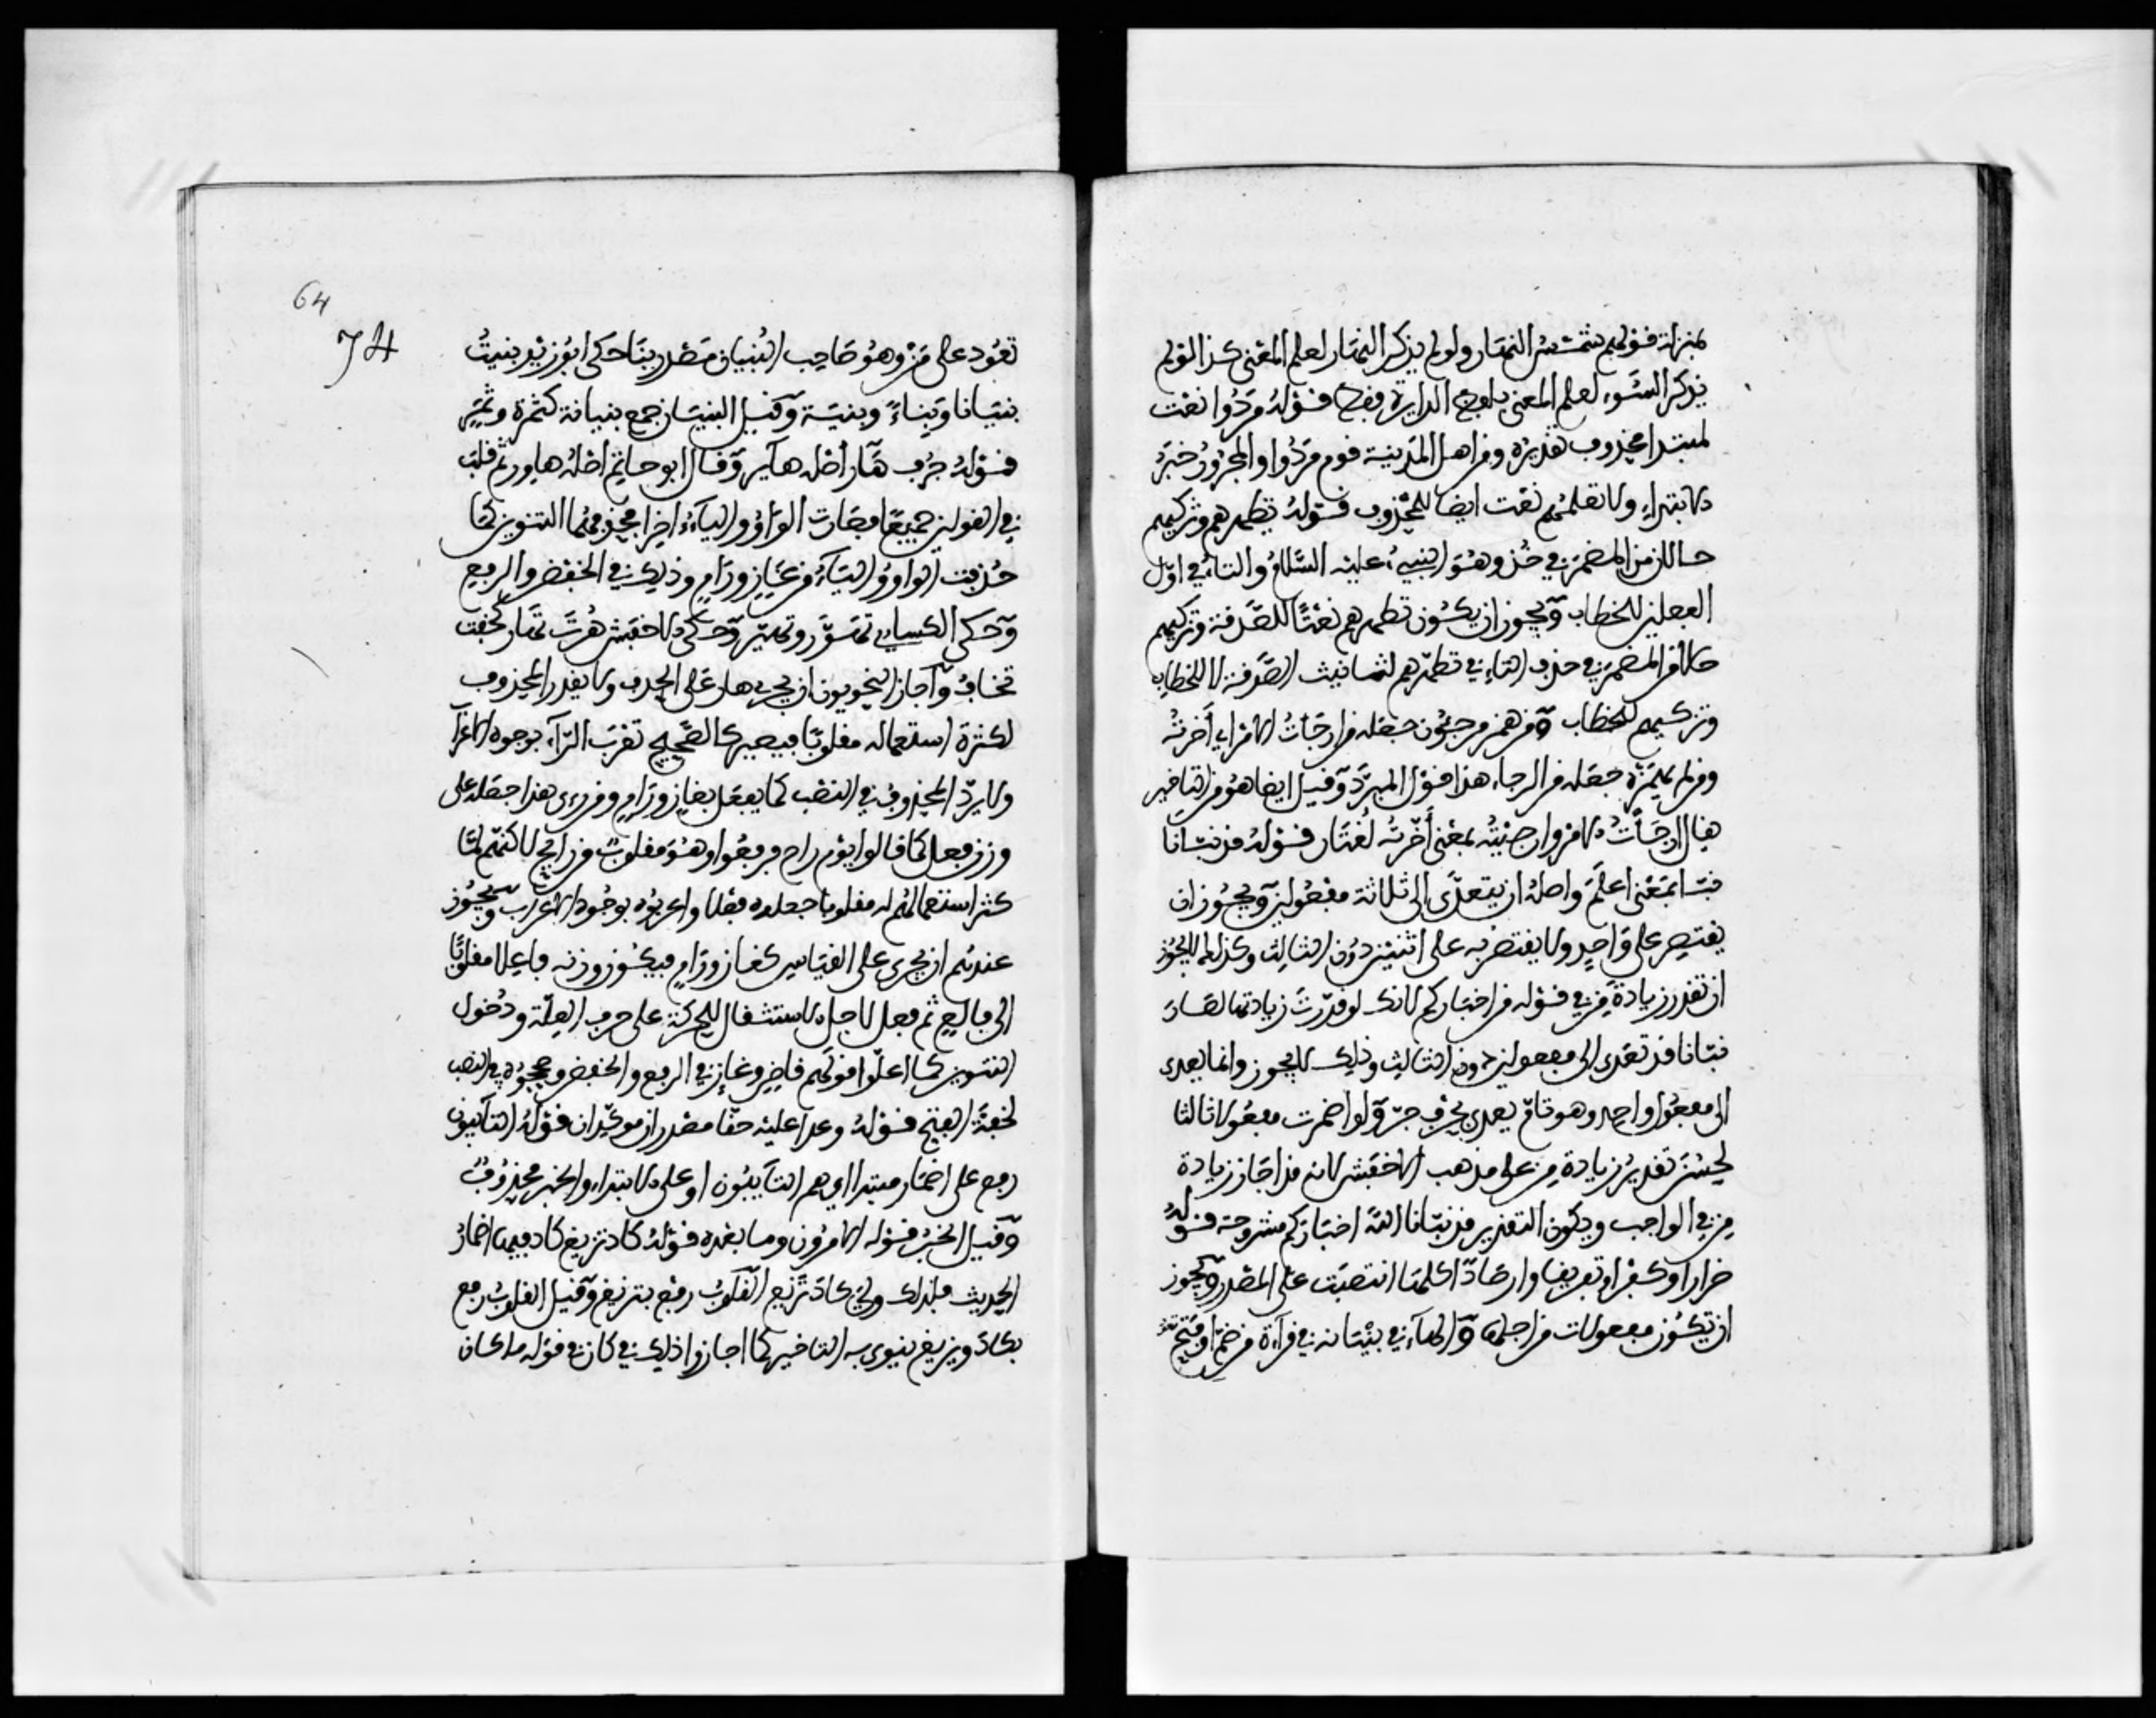 بمنزلة قولهم شمس النهار ولو لم يذكر النهار لعلم المعنى كذا لو لم
يذكر السوء لعلم المعنى بلفظ الدايرة فقط قوله مردوا نعت
لمبتدا محذوف تقديره ومن اهل المدينة قوم مردوا والمجرور خبر
الابتداء ولا تعلمهم نعت ايضا للمحذوف قوله تطهرهم وتزكيهم
حالان من المضمر في خذ وهو النبيء عليه السلام والتاء في اول
الفعلين للخطاب ويجوز ان يكون تطهرهم نعتا للصدقة وتزكيهم
حالا من المضمر في خذ والتاء في تطهرهم لتانيث الصدقة لا للخطاب
وتزكيهم للخطاب ومن همز مرجئون جعله من ارجات الامر اي أخرته
ومن لم يهمزه جعله من الرجاء هذا قول المبرد وقيل ايضا هو من التاخير
يقال ارجأت الامر وارجيته بمعنى أخرته لغتان قوله قد نبانا
نبا بمعنى اعلم واصله ان يتعدى الى ثلاثة مفعولين ويجوز ان
يقتصر على واحد ولا يقتصر به على اثنين دون الثالث وكذلك لا يجوز
ان تقدر زيادة من في قوله من اخباركم لانك لو قدرت زيادتها لصار
نبانا قد تعدى الى مفعولين دون الثالث وذلك لا يجوز وانما يعدى
الى مفعول واحد وهو نا ثم يعدى بحرف جر ولو اضمرت مفعولا ثالثا
لحسن تقدير زيادة من على مذهب الاخفش لانه قد اجاز زيادة
من في الواجب ويكون التقدير قد نبانا الله اخباركم مشروحة قوله
ضرارا وكفرا وتفريقا وارصادا كلها انتصبت على المصدر ويجوز
ان تكون مفعولات من اجلها والهاء في بنيانه في قراءة من ضم او فتح
64
74
تعود على من وهو صاحب البنيان مصدر بنا حكى ابو زيد بنيت
بنيانا وبناء وبنية وقيل البنيان جمع بنيانة كثمرة وثمر
قوله جرف هار أصله هاير وقال ابو حاتم اصله هاور ثم قلب
في القولين جميعا فصارت الواو والياء اخرا فحذفهما التنوين كما
حذفت الواو والياء من غاز ورام وذلك في الخفض والرفع
وحكى الكسايي تهور وتهير وحكى الاخفش هرت تهار كخفت
تخاف وأجاز النحويون ان يجرى هار على الحذف ولا يقدر المحذوف
لكثرة استعماله مقلوبا فيصير كالصحيح تعرب الراء بوجوه الاعراب
ولا يرد المحذوف في النصب كما يفعل بغاز ورام ومن رءى هذا جعله على
وزن فعل كما قالوا يوم راح فرفعوا وهو مقلوب من رايح لاكنهم لما
كثر استعمالهم له مقلوبا جعلوه فعلا واعربوه بوجوه الاعراب ويجوز
عندهم ان يجرى على القياس كغاز ورام فيكون وزنه فاعلا مقلوبا
الى فالع ثم فعل لاجل الاستثقال للحركة على حرف العلة ودخول
التنوين كما اعلوا قولهم قاض وغاز في الرفع والخفض وصححوه في النصب
لخفة الفتح قوله وعدا عليه حقا مصدران موكدان قوله التايبون
رفع على اضمار مبتدا اي هم التايبون او على الابتداء والخبر محذوف
وقيل الخبر قوله الامرون وما بعده قوله كاد تزيغ كاد فيها اضمار
الحديث فلذلك ولي كاد تزيغ القلوب رفع بتزيغ وقيل القلوب رفع
بكاد ويزيغ ينوى به التاخير كما اجازوا ذلك في كان في قوله ما كان